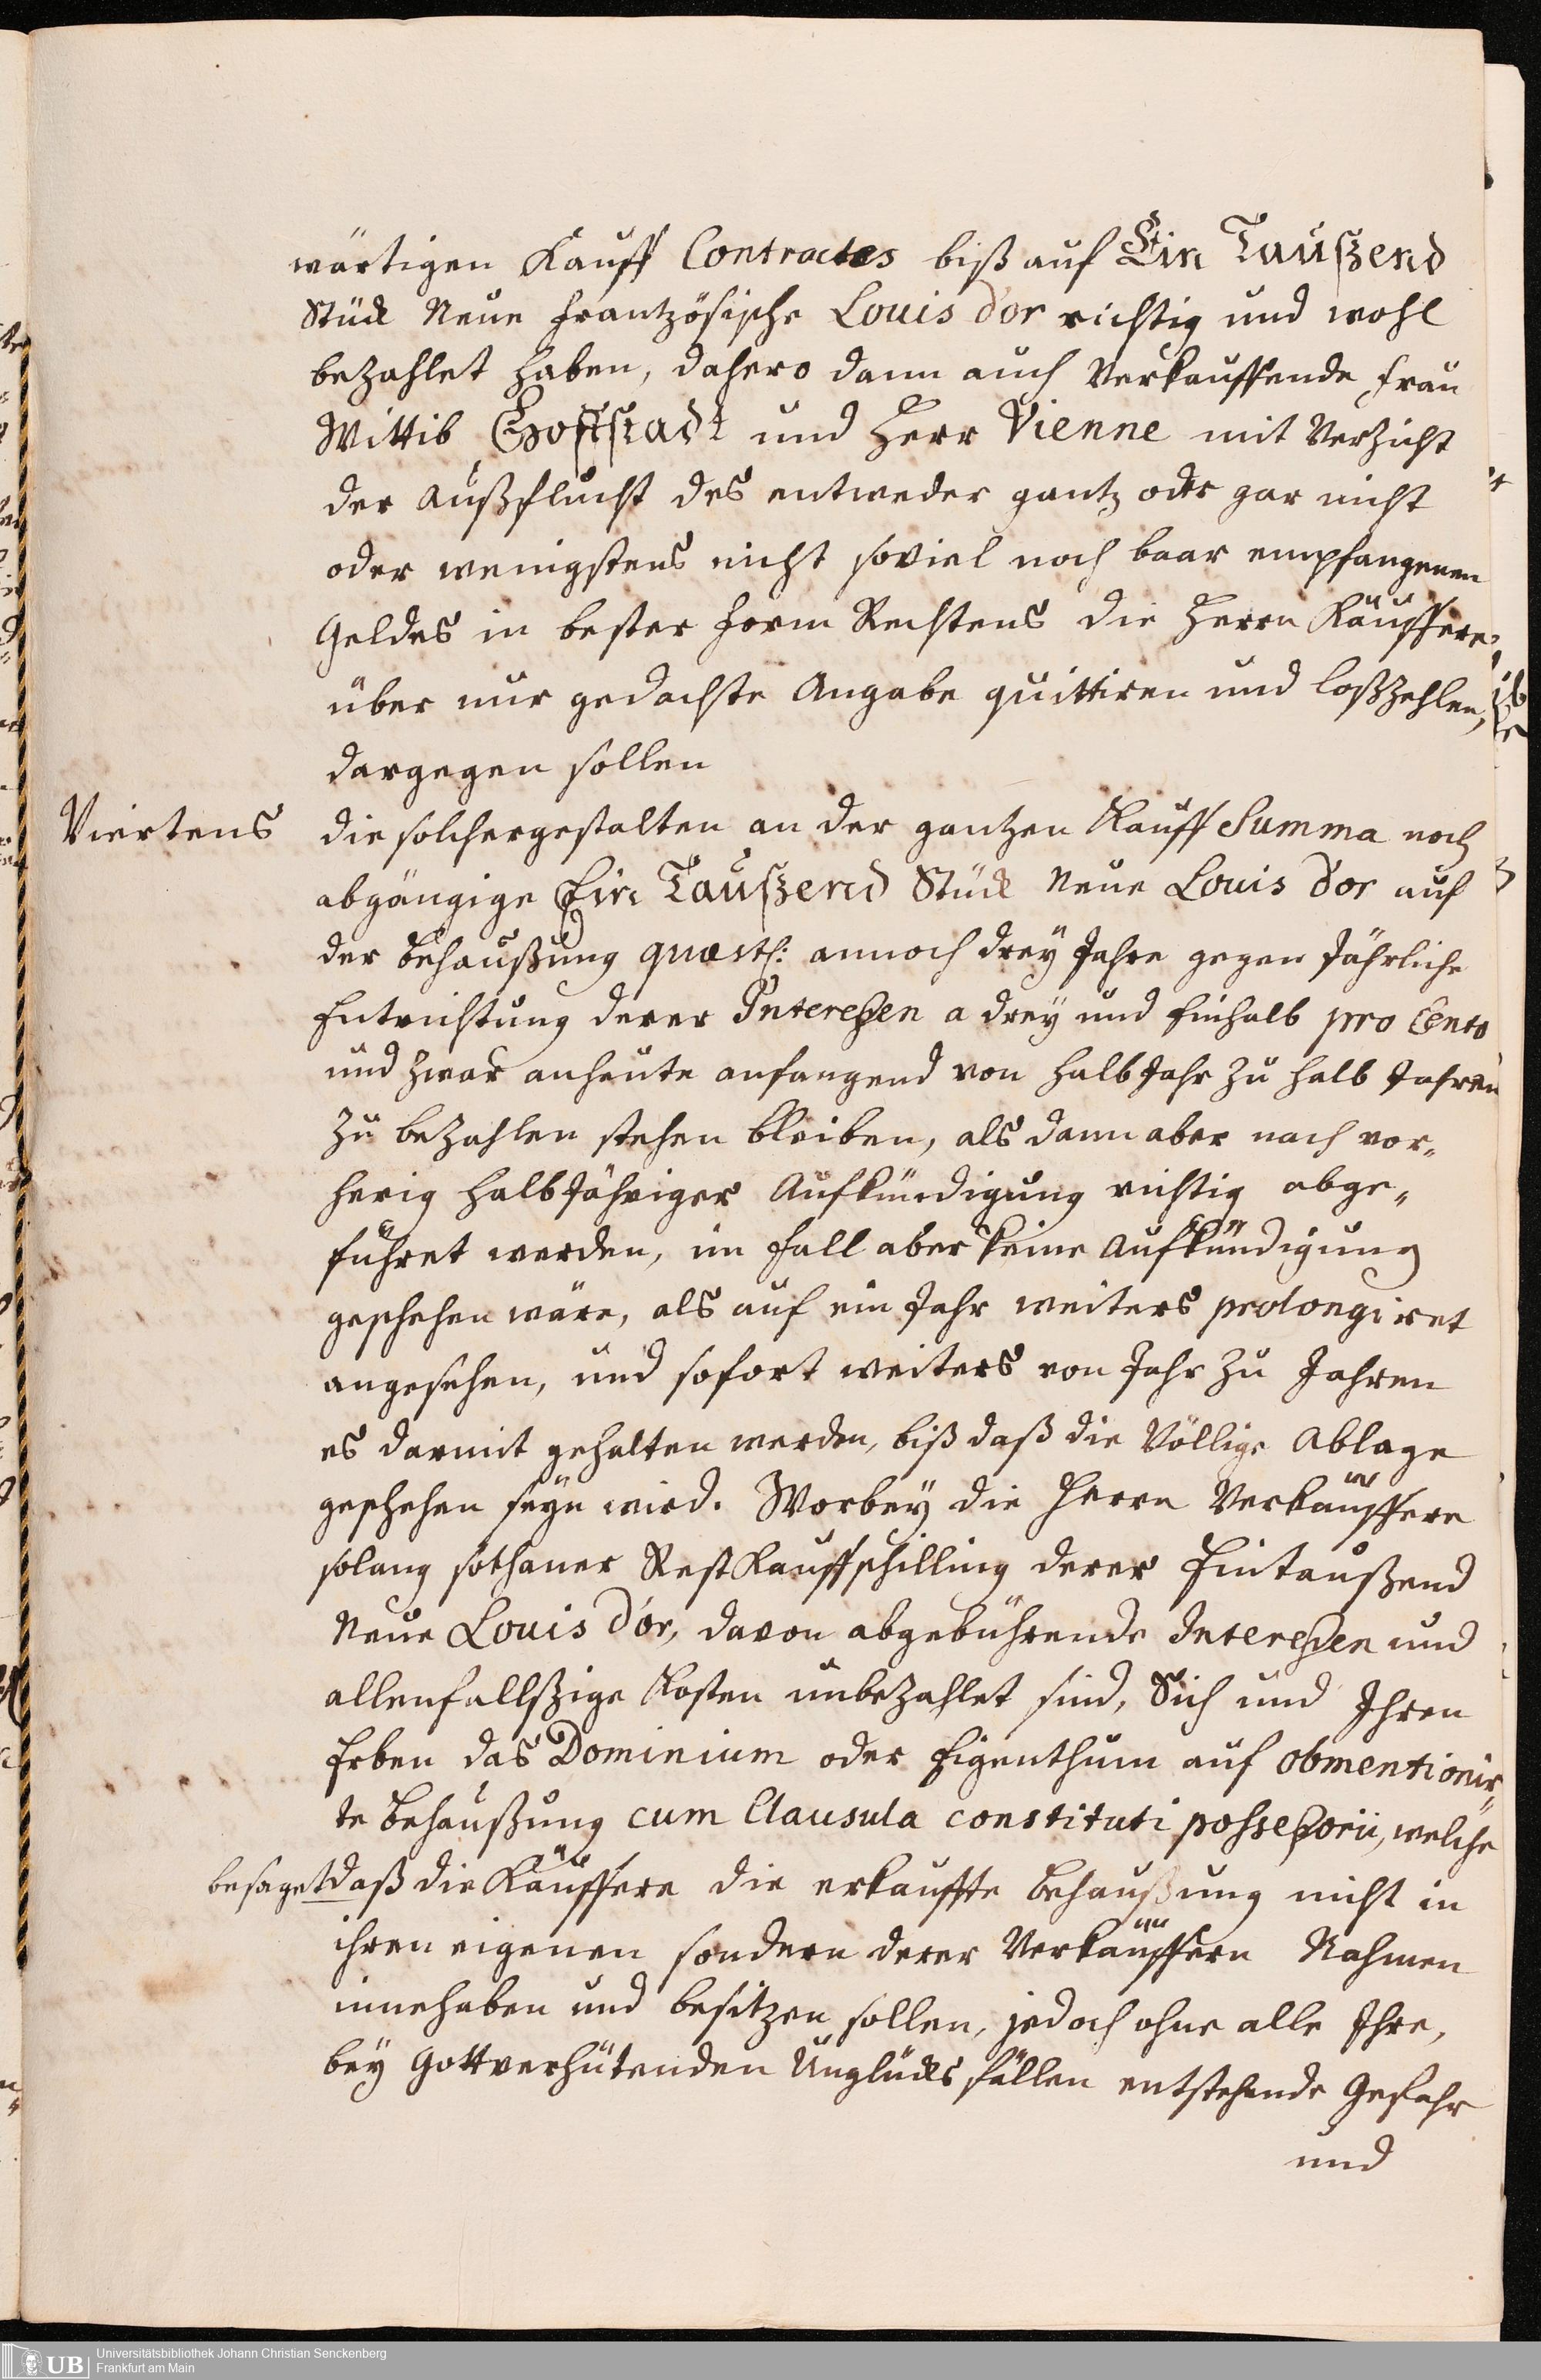 wärtigen Kauff Contractes biß auf Ein Taußend
Stück Neue Frantzösische Louis d'or richtig und wohl
bezahlet haben, dahero dann auch Verkauffende Frau
Wittib Hoffstadt und Herr Vienne mit Verzicht
der Außflucht des entweder gantz oder gar nicht
oder wenigstens nicht soviel noch baar empfangenen
Geldes in bester Form Rechtens die Herrn Käuffere,
über nur gedachte Angabe quittiren und loßzehlen,
dargegen sollen
Viertens die solchergestalten an der gantzen Kauff Summa noch
abgängige Ein Taußend Stück Neue Louis d'or auf
der Behaußung quæst: annoch drey Jahre gegen Jährliche
Entrichtung derer Interessen a drey und Einhalb pro Cento
und zwar anheute anfangend von halb Jahr zu halb Jahren
zu bezahlen stehen bleiben, als dann aber nach vor„
herig halbJähriger Aufkündigung richtig abge„
führet werden, im Fall aber keine Aufkündigung
geschehen wäre, als auf ein Jahr weiters prolongiret
angesehen, und sofort weiters von Jahr zu Jahren
es darmit gehalten werden, biß daß die Völlige Ablage
geschehen seyn wird. Worbey die Herrn Verkäuffere
solang sothaner Rest Kauffschilling derer Eintaußend
Neue Louis d'or, davon abgebührende Interessen und
allenfallßige Kosten unbezahlet sind, Sich und Ihren
Erben das Dominium oder Eigenthum auf obmentionir„
te Behaußung cum Clausula constituti possessorii, welche
besaget daß die Käuffere die erkauffte Behaußung nicht in
ihren eigenen sondern derer Verkäuffern Nahmen
innehaben und besitzen sollen, jedoch ohne alle Ihre,
bey Gottverhütenden Unglücks fällen entstehende Gefahr
und
UB Universitätsbibliothek Johann Christian Senckenberg
Frankfurt am Main